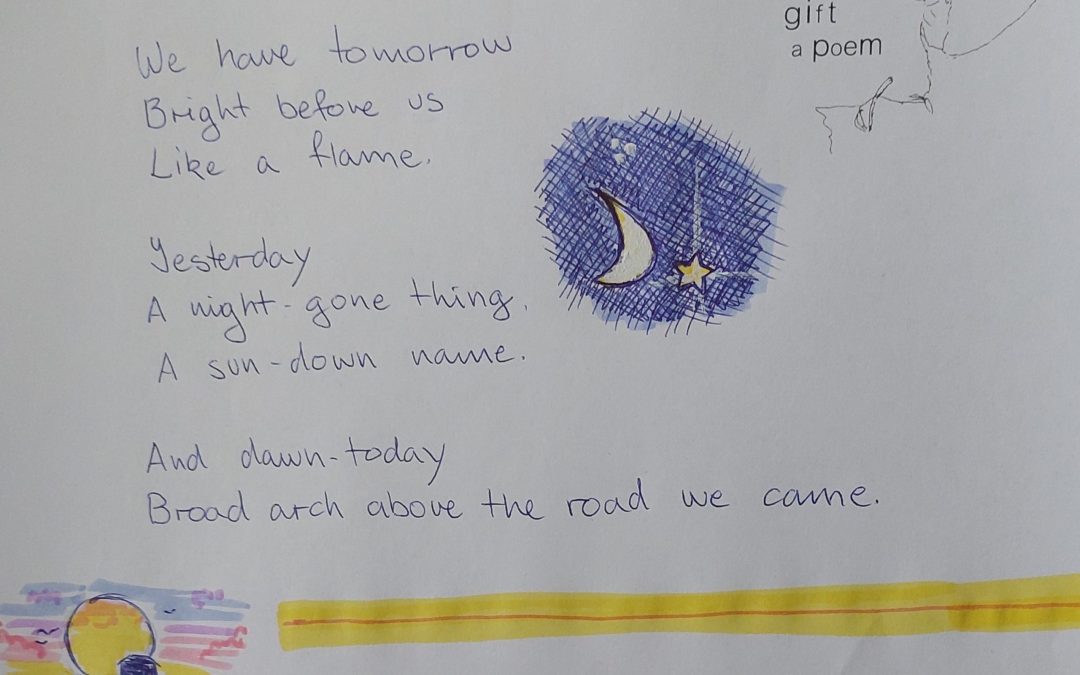 gift
a poem
We have tomorrow
Bright before us
Like a flame.
Yesterday
A night-gone thing,
A sun-down name.
And dawn-today
Broad arch above the road we came.